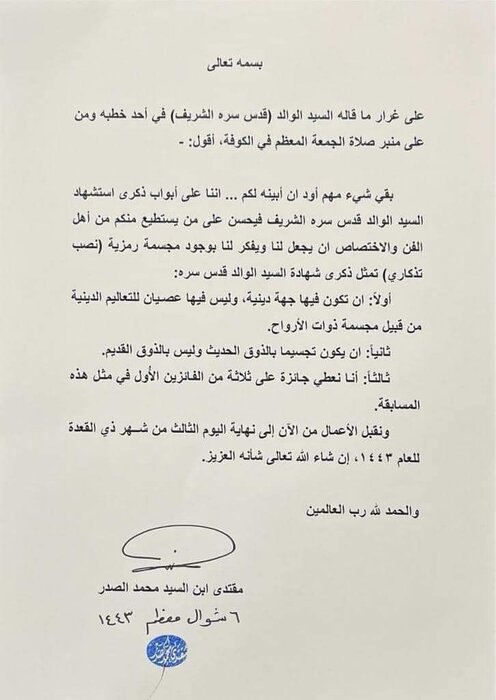 بسمه تعالى
على غرار ما قاله السيد الوالد (قدس سره الشريف) في أحد خطبه ومن
على منبر صلاة الجمعة المعظم في الكوفة، أقول: -
بقي شيء مهم أود ان أبينه لكم ... اننا على أبواب ذكرى استشهاد
السيد الوالد قدس سره الشريف فيحسن على من يستطيع منكم من أهل
الفن والاختصاص ان يجعل لنا ويفكر لنا بوجود مجسمة رمزية (نصب
تذكاري) تمثل ذكرى شهادة السيد الوالد قدس سره:
أولاً: ان تكون فيها جهة دينية، وليس فيها عصيان للتعاليم الدينية
من قبيل مجسمة ذوات الأرواح.
ثانياً: ان يكون تجسيما بالذوق الحديث وليس بالذوق القديم.
ثالثاً: أنا نعطي جائزة على ثلاثة من الفائزين الأُول في مثل هذه
المسابقة.
ونقبل الأعمال من الآن إلى نهاية اليوم الثالث من شهر ذي القعدة
للعام ١٤٤٣، إن شاء الله تعالى شأنه العزيز.
والحمد لله رب العالمين
مقتدى ابن السيد محمد الصدر
٦ شوال معظم ١٤٤٣